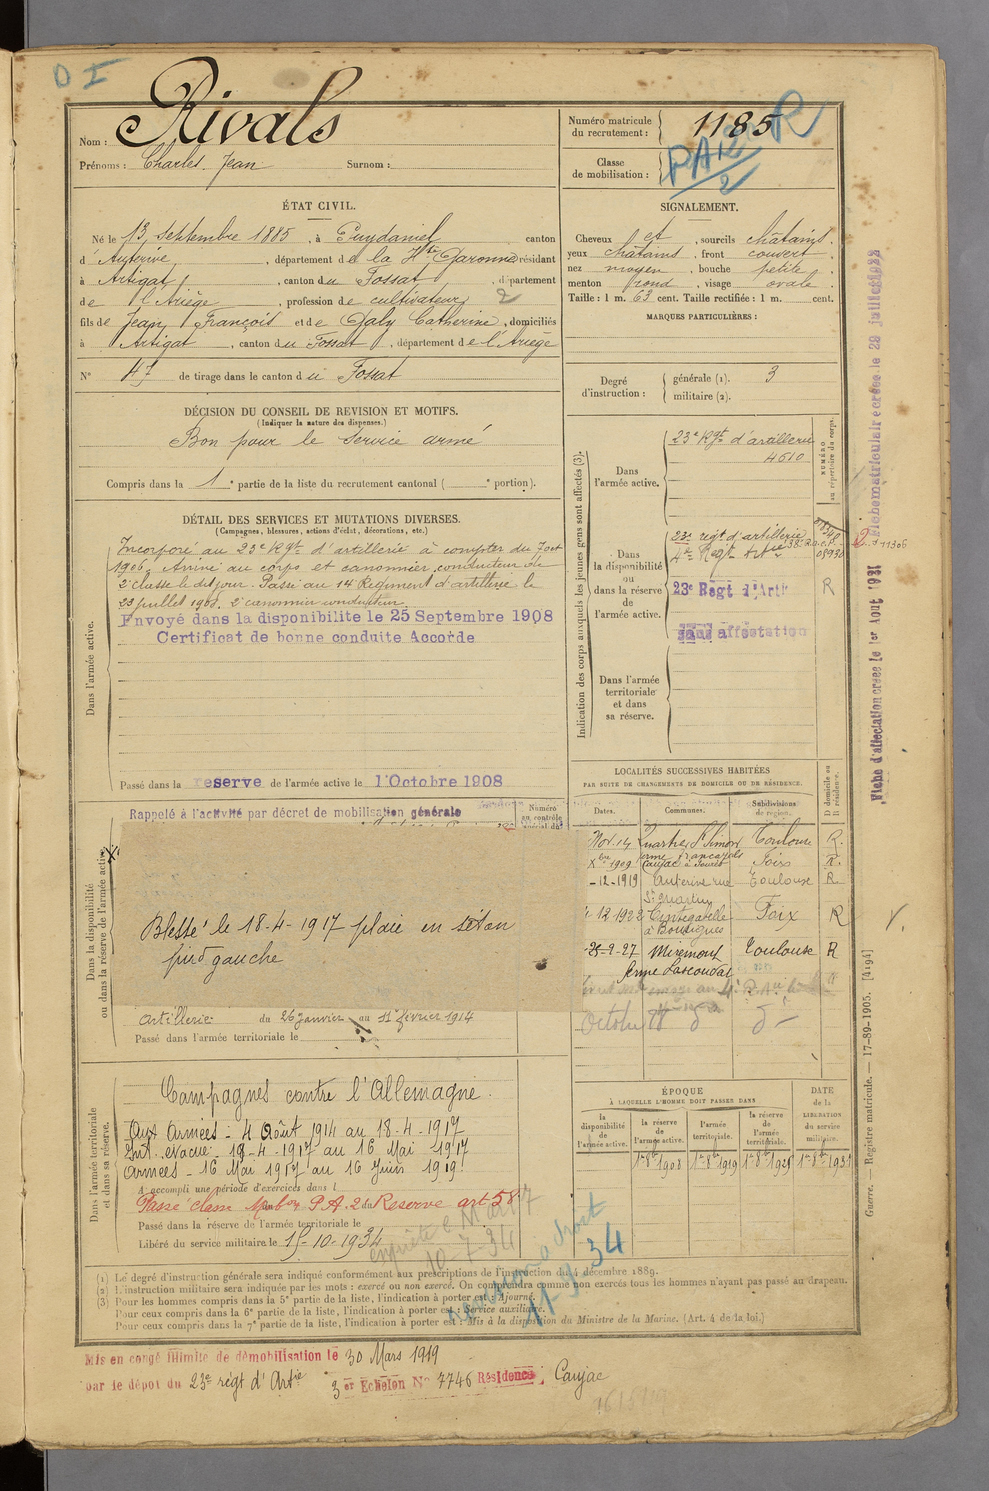 D I
Nom : Rivals
Prénoms : Charles Jean Surnom :
Numéro matricule du recrutement : 1185
Classe de mobilisation :
ÉTAT CIVIL.
Né le 13 septembre 1885, à Puydaniel canton
d'Auterive, département de la Hte Garonne résidant
à Artigat, canton du Fossat, département
de l'Ariège, profession de cultivateur
fils de Jean François et de Daly Catherine, domiciliés
à Artigat, canton du Fossat, département de l'Ariège
N° 47 de tirage dans le canton du Fossat
SIGNALEMENT.
Cheveux et, sourcils châtains.
yeux châtains, front couvert.
nez moyen, bouche petite.
menton rond, visage ovale.
Taille : 1 m. 63 cent. Taille rectifiée : 1 m. cent.
MARQUES PARTICULIÈRES :
Degré d'instruction : générale (1). 3
militaire (2).
DÉCISION DU CONSEIL DE REVISION ET MOTIFS.
(Indiquer la nature des dispenses.)
Bon pour le service armé
Compris dans la 1e partie de la liste du recrutement cantonal ( e portion).
DÉTAIL DES SERVICES ET MUTATIONS DIVERSES.
(Campagnes, blessures, actions d'éclat, décorations, etc.)
Dans l'armée active.
Incorporé au 23e Rgt d'artillerie à compter du 7 oct
1906, Arrivé au corps et canonnier conducteur de
2e classe le dit jour. Passé au 14 Régiment d'artillerie le
23 juillet 1908. 2e canonnier conducteur
Envoyé dans la disponibilité le 25 Septembre 1908
Certificat de bonne conduite Accordé
Passé dans la reserve de l'armée active le 1'Octobre 1908
Indication des corps auxquels les jeunes gens sont affectés (3).
NUMÉRO au répertoire du corps.
Dans l'armée active.
23e Rgt d'artillerie
4610
Dans la disponibilité ou dans la réserve de l'armée active.
23e régt d'artillerie
23e Regt d'Artie
R
sans affectation
Dans l'armée territoriale et dans sa réserve.
Fiche matriculaire créée le 29 juillet
Fiche d'affectation créée le 1er Aout 1931
LOCALITÉS SUCCESSIVES HABITÉES
PAR SUITE DE CHANGEMENTS DE DOMICILE OU DE RÉSIDENCE.
D domicile ou R résidence.
Dates. Communes. Subdivisions de région.
Nov. 14 Quartier St Simon Toulouse R.
Xbre 1909 Foix R.
-12-1919 Auterive rue St Martin Toulouse R
12 1923 Cintegabelle à Boutigues Foix R
-25-9-27 Miremont Toulouse R
ferme Lascoudal
Dans la disponibilité ou dans la réserve de l'armée active
Rappelé à l'activité par décret de mobilisation générale
Numéro au contrôle spécial du
Blessé le 18-4-1917 plaie en séton
pied gauche
artillerie du 26 janvier au 11 février 1914
Passé dans l'armée territoriale le
Dans l'armée territoriale et dans sa réserve.
Campagnes contre l'Allemagne.
Aux Armées : 4 Août 1914 au 18-4-1917
Int. évacué 18-4-1917 au 16 Mai 1917
Armées - 16 Mai 1917 au 16 Juin 1919
A accompli une période d'exercices dans l
Passé dans la réserve de l'armée territoriale le
Libéré du service militaire le 15-10-1934
10-7-34
11-9-34
ÉPOQUE
À LAQUELLE L'HOMME DOIT PASSER DANS
la disponibilité de l'armée active. la réserve de l'armée active. l'armée territoriale. la réserve de l'armée territoriale.
DATE de la LIBÉRATION du service militaire.
1er 8bre 1908 1er 8bre 1919 1er 8bre 1925 1er 8bre 1931
Guerre. — Registre matricule. — 17-89-1905. [4194]
(1) Le degré d'instruction générale sera indiqué conformément aux prescriptions de l'instruction du 4 décembre 1889.
(2) L'instruction militaire sera indiquée par les mots : exercé ou non exercé. On comprendra comme non exercés tous les hommes n'ayant pas passé au drapeau.
(3) Pour les hommes compris dans la 5e partie de la liste, l'indication à porter est : Ajourné.
Pour ceux compris dans la 6e partie de la liste, l'indication à porter est : Service auxiliaire.
Pour ceux compris dans la 7e partie de la liste, l'indication à porter est : Mis à la disposition du Ministre de la Marine. (Art. 4 de la loi.)
Mis en congé illimité de démobilisation le 30 Mars 1919
par le dépôt du 23e régt d'Artie 3er Echelon N° 7746 Résidence : Caujac